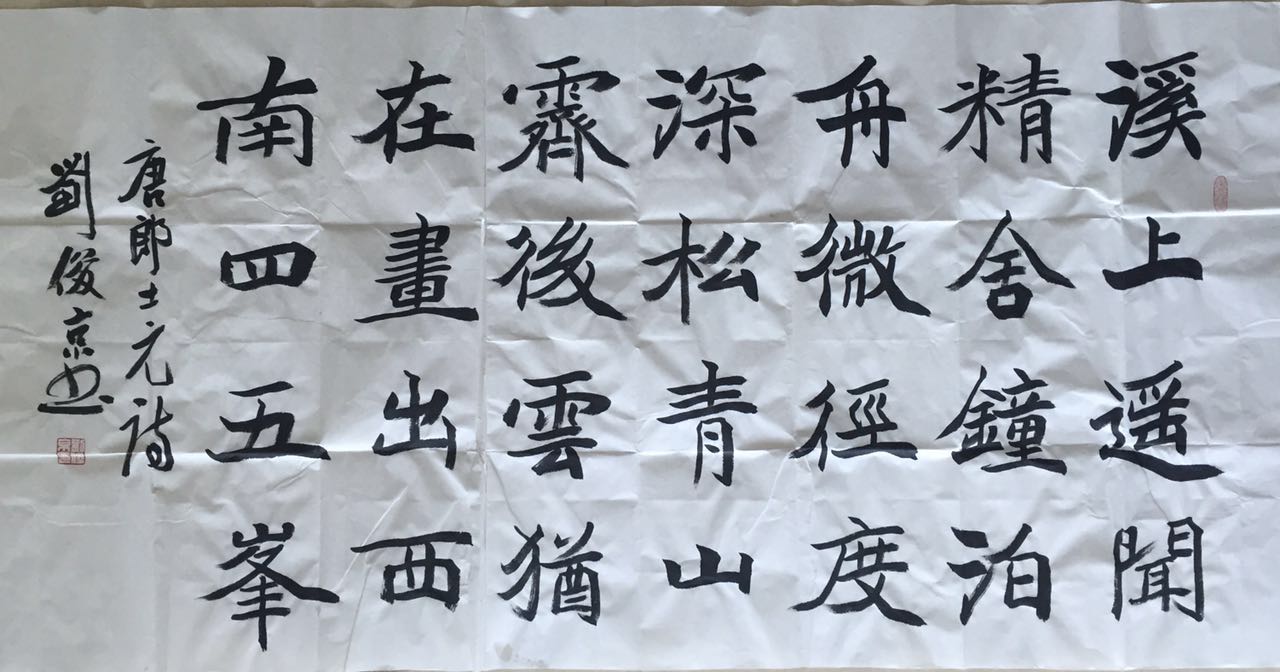 溪上遥聞
精舍鐘泊
舟微徑度
深松青山
霽後雲猶
在畫出西
南四五峯
唐郎士元詩
劉俊京书